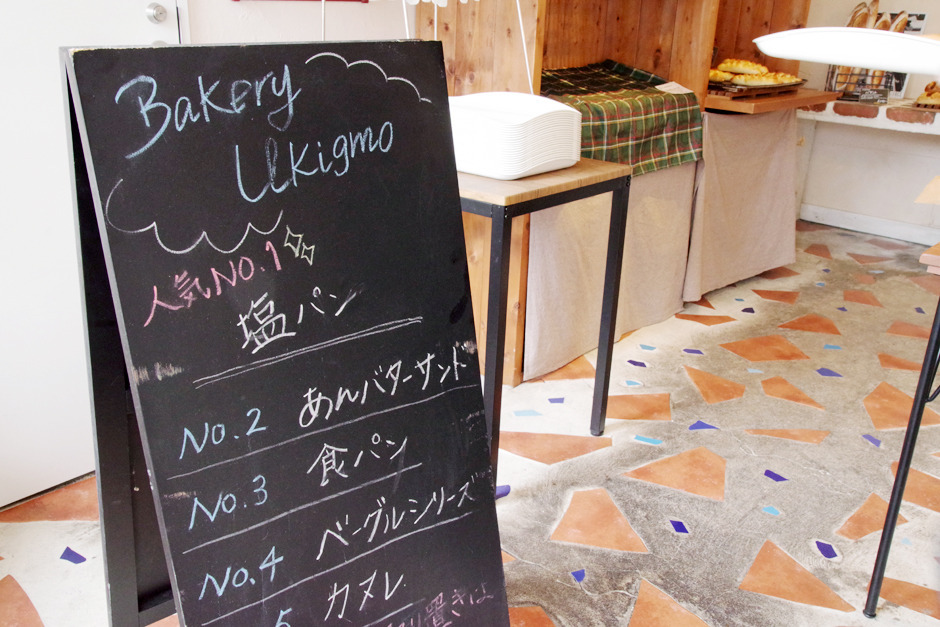 Bakery
Ukigmo
人気NO.1
塩パン
No.2 あんバターサンド
No.3 食パン
No.4 ベーグルシリーズ
5 カヌレ
置きは